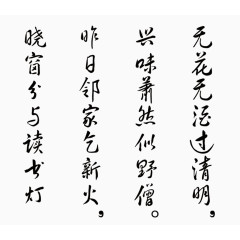 无花无酒过清明，
兴味萧然似野僧。
昨日邻家乞新火，
晓窗分与读书灯